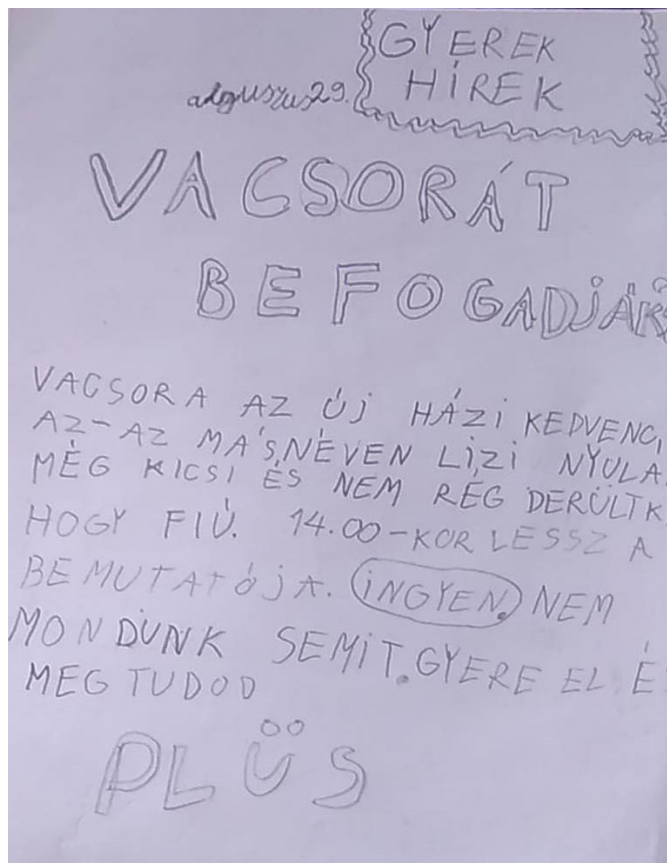 GYEREK
HÍREK
auguszus 29.
VACSORÁT
BEFOGADJÁK
VACSORA AZ ÚJ HÁZI KEDVENC,
AZ-AZ MÁS NÉVEN LIZI NYULA.
MÉG KICSI ÉS NEM RÉG DERÜLT K
HOGY FIÚ. 14.00-KOR LESSZ A
BEMUTATÓJA. INGYEN. NEM
MONDUNK SEMIT. GYERE EL É
MEGTUDOD
PLÜS